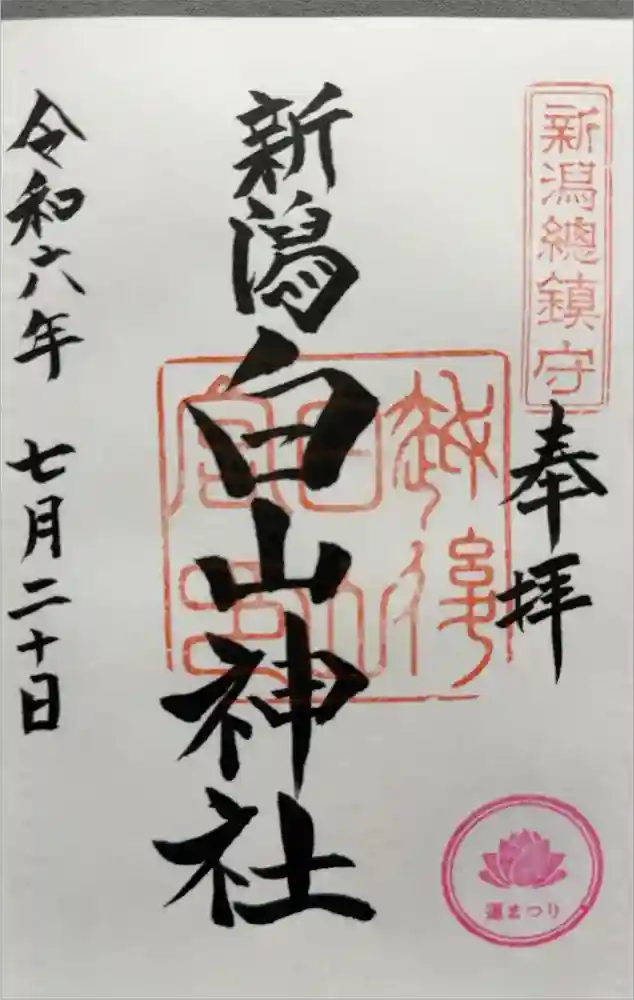 新潟總鎮守
奉拝
新潟白山神社
越後
白山
宮印
令和六年 七月二十日
蓮まつり